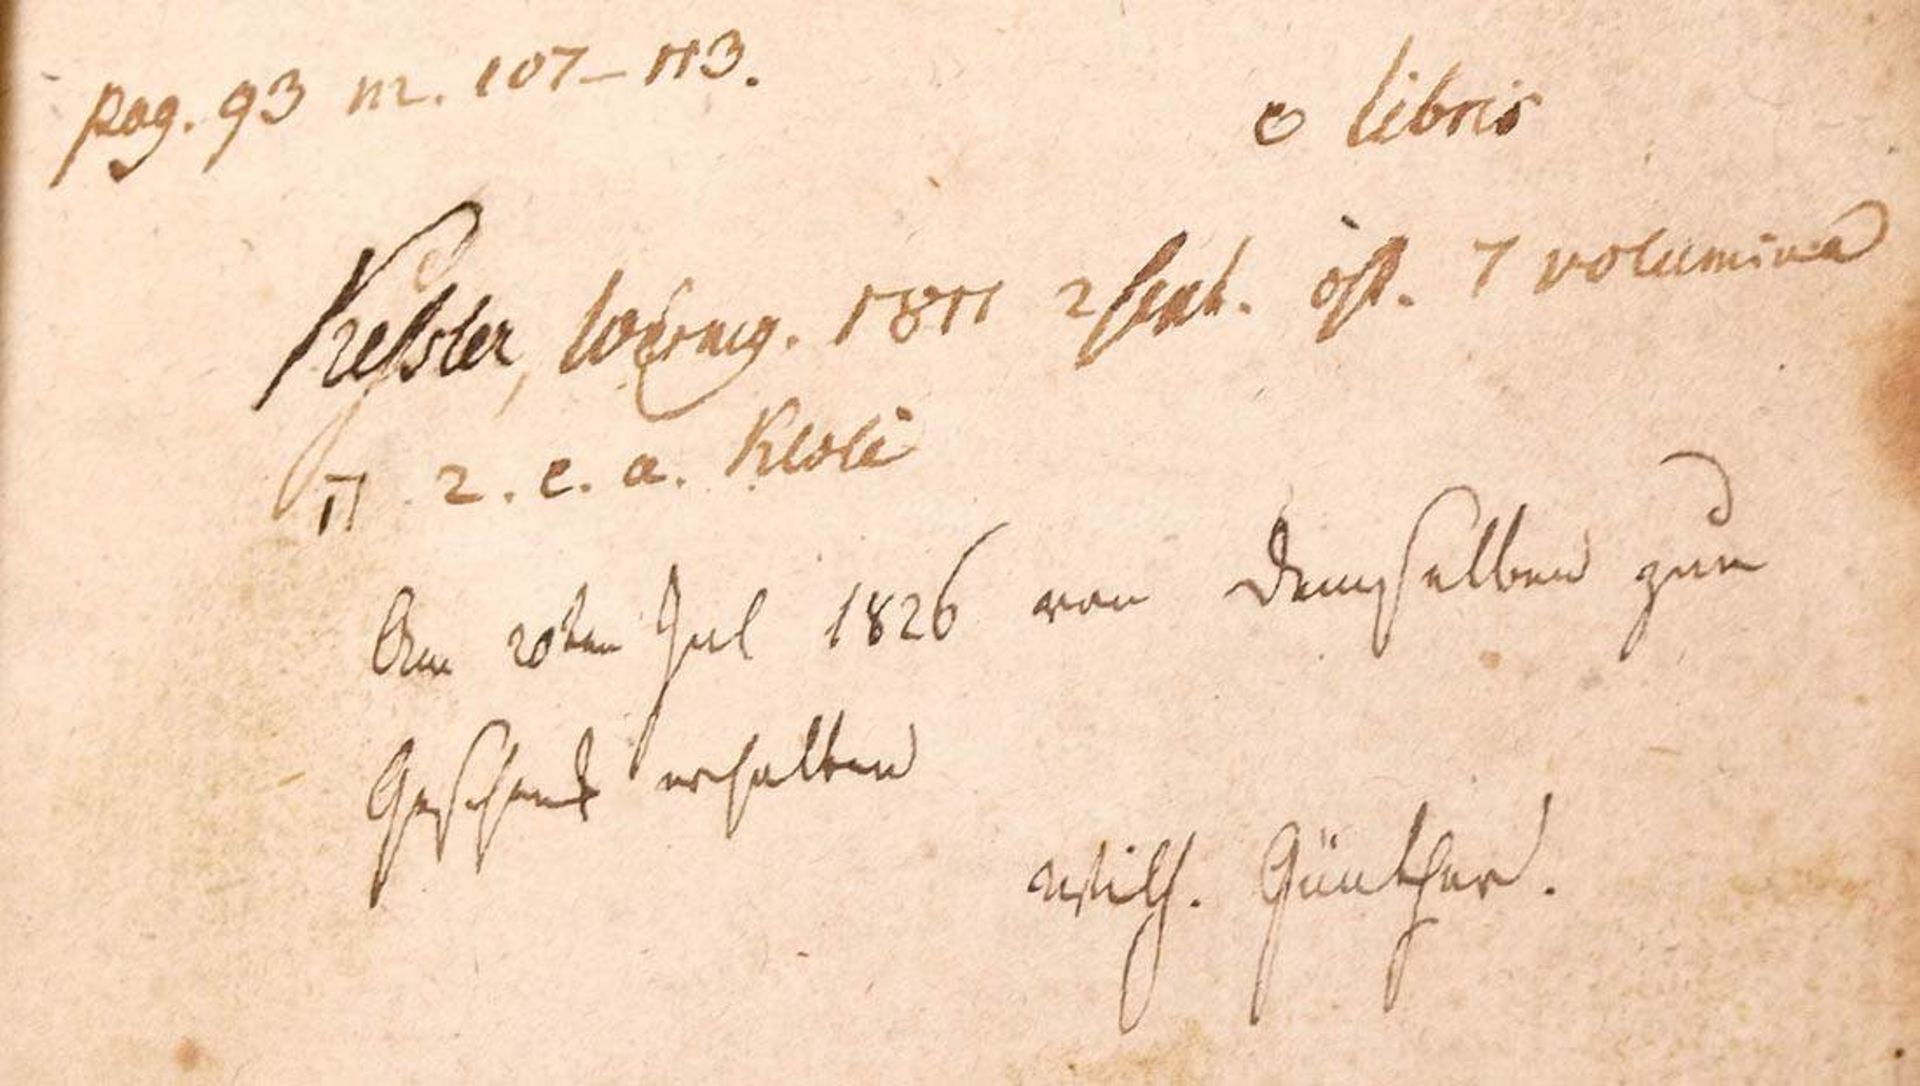 pag. 93 nr. 107–113.
e libris
Kessler, Wernig. 1811 2 Sept. öst. 7 volumina
11 2. e. a. Klose
Am 20ten Jul 1826 von demselben zum
Geschenk erhalten
Wilh. Günther.